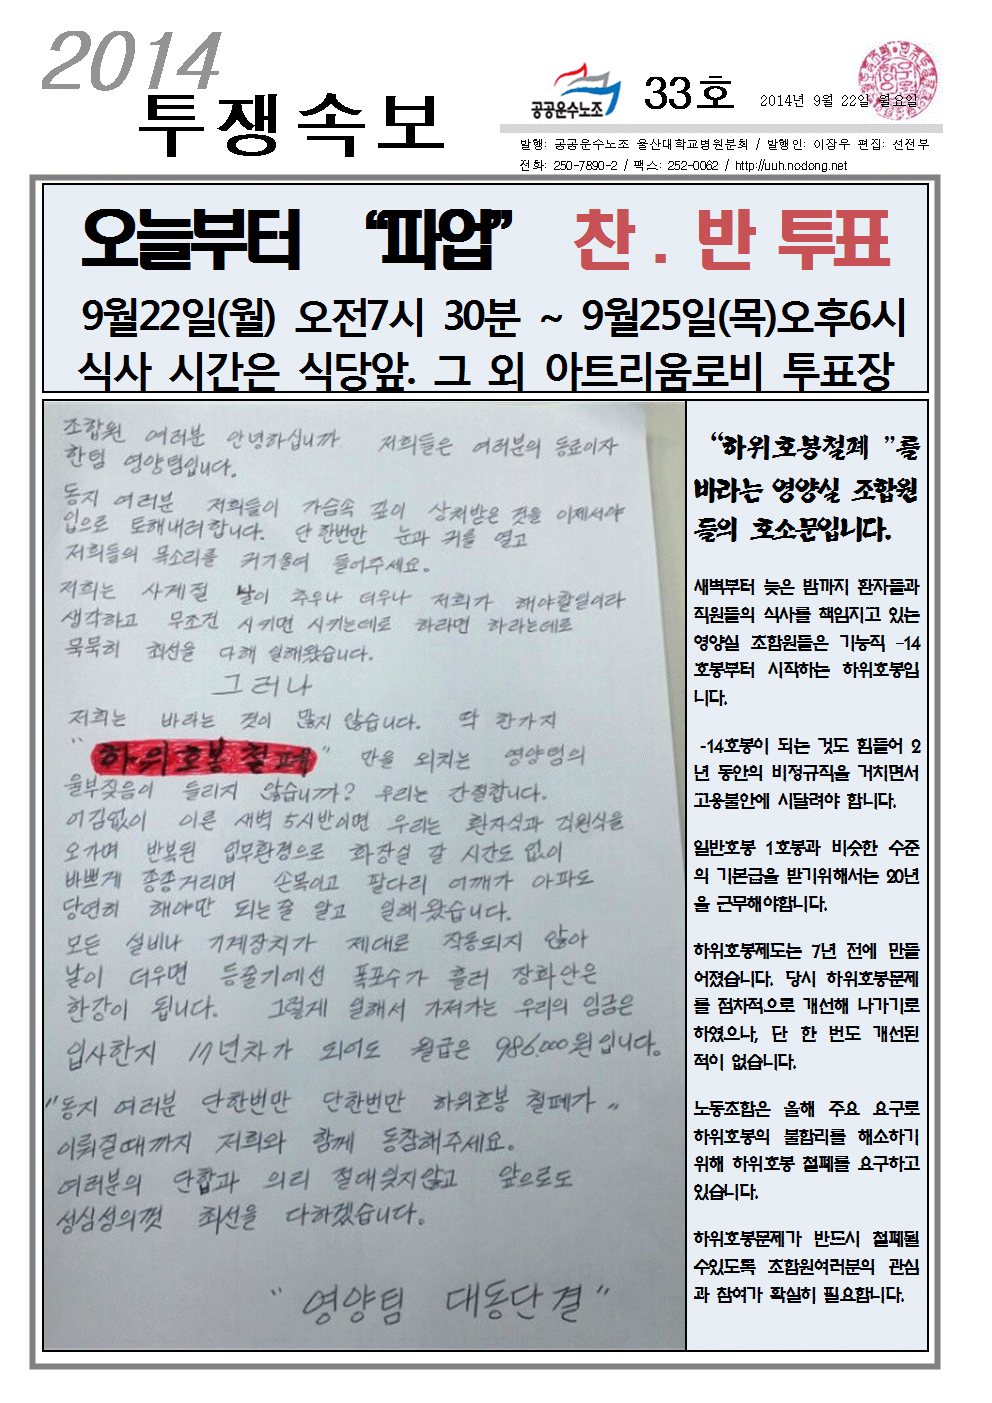 2014
투쟁속보
공공운수노조
33호
2014년 9월 22일 월요일
발행: 공공운수노조 울산대학교병원분회 / 발행인: 이장우 편집: 선전부
전화: 250-7890-2 / 팩스: 252-0062 / http://uuh.nodong.net
오늘부터 “파업” 찬 . 반 투표
9월22일(월) 오전7시 30분 ~ 9월25일(목)오후6시
식사 시간은 식당앞. 그 외 아트리움로비 투표장
조합원 여러분 안녕하십니까 저희들은 여러분의 동료이자
한팀 영양팀입니다.
동지 여러분 저희들이 가슴속 깊이 상처받은 것을 이제서야
입으로 토해내려합니다. 단 한번만 눈과 귀를 열고
저희들의 목소리를 귀기울여 들어주세요.
저희는 사계절 날이 추우나 더우나 저희가 해야할일이라
생각하고 무조건 시키면 시키는데로 하라면 하라는데로
묵묵히 최선을 다해 일해왔습니다.
그러나
저희는 바라는 것이 많지 않습니다. 딱 한가지
“하위호봉 철폐” 만을 외치는 영양팀의
울부짖음이 들리지 않습니까? 우리는 간절합니다.
어김없이 이른 새벽 5시반이면 우리는 환자식과 직원식을
오가며 반복된 업무환경으로 화장실 갈 시간도 없이
바쁘게 종종거리며 손목이고 팔다리 어깨가 아파도
당연히 해야만 되는줄 알고 일해왔습니다.
모든 설비나 기계장치가 제대로 작동되지 않아
날이 더우면 등줄기에선 폭포수가 흘러 장화안은
한강이 됩니다. 그렇게 일해서 가져가는 우리의 임금은
입사한지 17년차가 되어도 월급은 986.000원입니다.
“동지 여러분 단한번만 단한번만 하위호봉 철폐가 „
이뤄질때까지 저희와 함께 동참해주세요.
여러분의 단합과 의리 절대잊지않고 앞으로도
성심성의껏 최선을 다하겠습니다.
“영양팀 대동단결”
“하위호봉철폐 ”를
바라는 영양실 조합원
들의 호소문입니다.
새벽부터 늦은 밤까지 환자들과
직원들의 식사를 책임지고 있는
영양실 조합원들은 기능직 -14
호봉부터 시작하는 하위호봉입
니다.
-14호봉이 되는 것도 힘들어 2
년 동안의 비정규직을 거치면서
고용불안에 시달려야 합니다.
일반호봉 1호봉과 비슷한 수준
의 기본급을 받기위해서는 20년
을 근무해야합니다.
하위호봉제도는 7년 전에 만들
어졌습니다. 당시 하위호봉문제
를 점차적으로 개선해 나가기로
하였으나, 단 한 번도 개선된
적이 없습니다.
노동조합은 올해 주요 요구로
하위호봉의 불합리를 해소하기
위해 하위호봉 철폐를 요구하고
있습니다.
하위호봉문제가 반드시 철폐될
수있도록 조합원여러분의 관심
과 참여가 확실히 필요합니다.